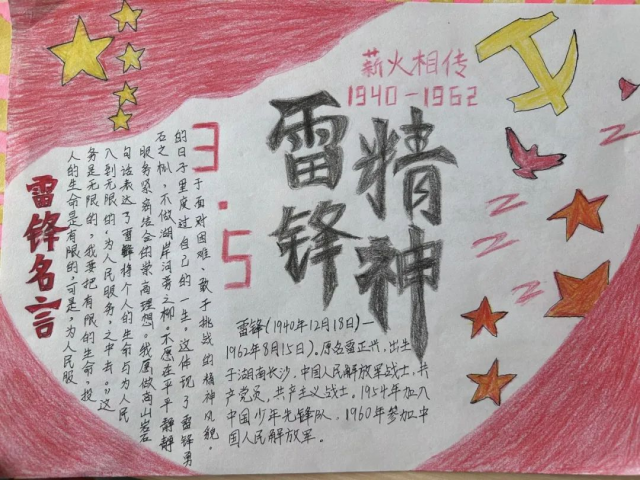 薪火相传
1940-1962
雷锋
精神
3.5
雷锋名言
人的生命是有限的,可是,为人民服
务是无限的,我要把有限的生命,投
入到无限的,为人民服务,之中去。"这
句话表达了雷锋将个人的生命与为人民
服务紧密结合的崇高理想。我愿做高山岩石
石之松,不做湖岸河旁之柳。不愿在平平静静
的日子里度过自己的一生。这体现了雷锋勇
于面对困难、敢于挑战的精神风貌。
雷锋(1940年12月18日)—
1962年8月15日)。原名雷正兴,出生
于湖南长沙,中国人民解放军战士,共
产党员,共产主义战士。1954年加入
中国少年先锋队,1960年参加中
国人民解放军。